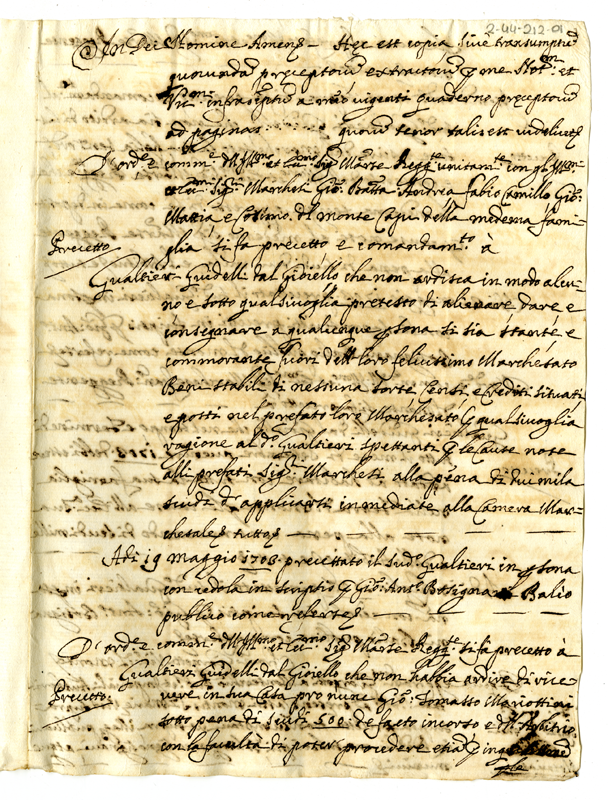 2-44-212-01
In Dei Nomine Amen. Hec est copia sive transumptũ
quorundã preceptorũ extractorũ p me Notm et
Vicm infrascriptũ a meo vigenti quaderno preceptorũ
ad paginas quorũ tenor talis est videlicet
D'orde e comme dll Illmo et Sige Marse Reggte unitamte con gl' Illmi
Sigri Marchesi Gio: Batta Andrea Fabio Camillo Gio:
Mattia e Cosimo dl monte Capi della medema fami-
Precetto
glia si fa precetto e comandamto à
Gualtieri Guidelli dal Gioiello che non ardisca in modo alcu-
no e sotto qualsivoglia pretesto di alienare dare e
consegnare a qualunque psona si sia stante e
commorante fuori dell loro felicissimo Marchesato
Beni stabili di nessuna sorte Censi, e Crediti situati
e posti nel prefato loro Marchesato p qualsivoglia
ragione al do Gualtieri spettanti p le Cause note
alli prefati Sigri Marchesi alla pena di dui mila
scudi da applicarsi inmediate alla Camera Mar-
chesale tutto
Adi 19 Maggio 1703 precettato il sudo Gualtieri in psona
con cedola in scriptis p Gio: Anto Balio
publico come referse
D'orde e comme dll Illmo et Sige Marse Reggte si fa precetto à
Gualtieri Guidelli dal Gioiello che non habbia ardire di rice
Precetto
vere in sua Casa pro nunc Gio: Tomasso Mariottini
sotto pena di scudi 500 de facto incorso e dll Arbitrio
con la facultà di poter procedere etiã p inquisitione